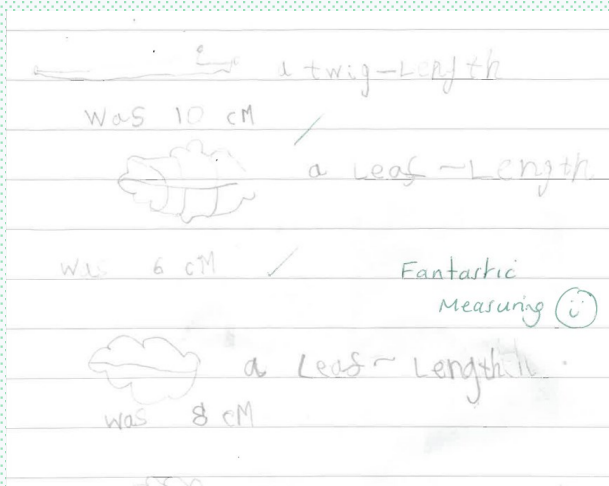 a twig-Length
was 10 cM
a Leaf-Length
was 6 cM
Fantastic
Measuring
a Leaf-Length
was 8 cM